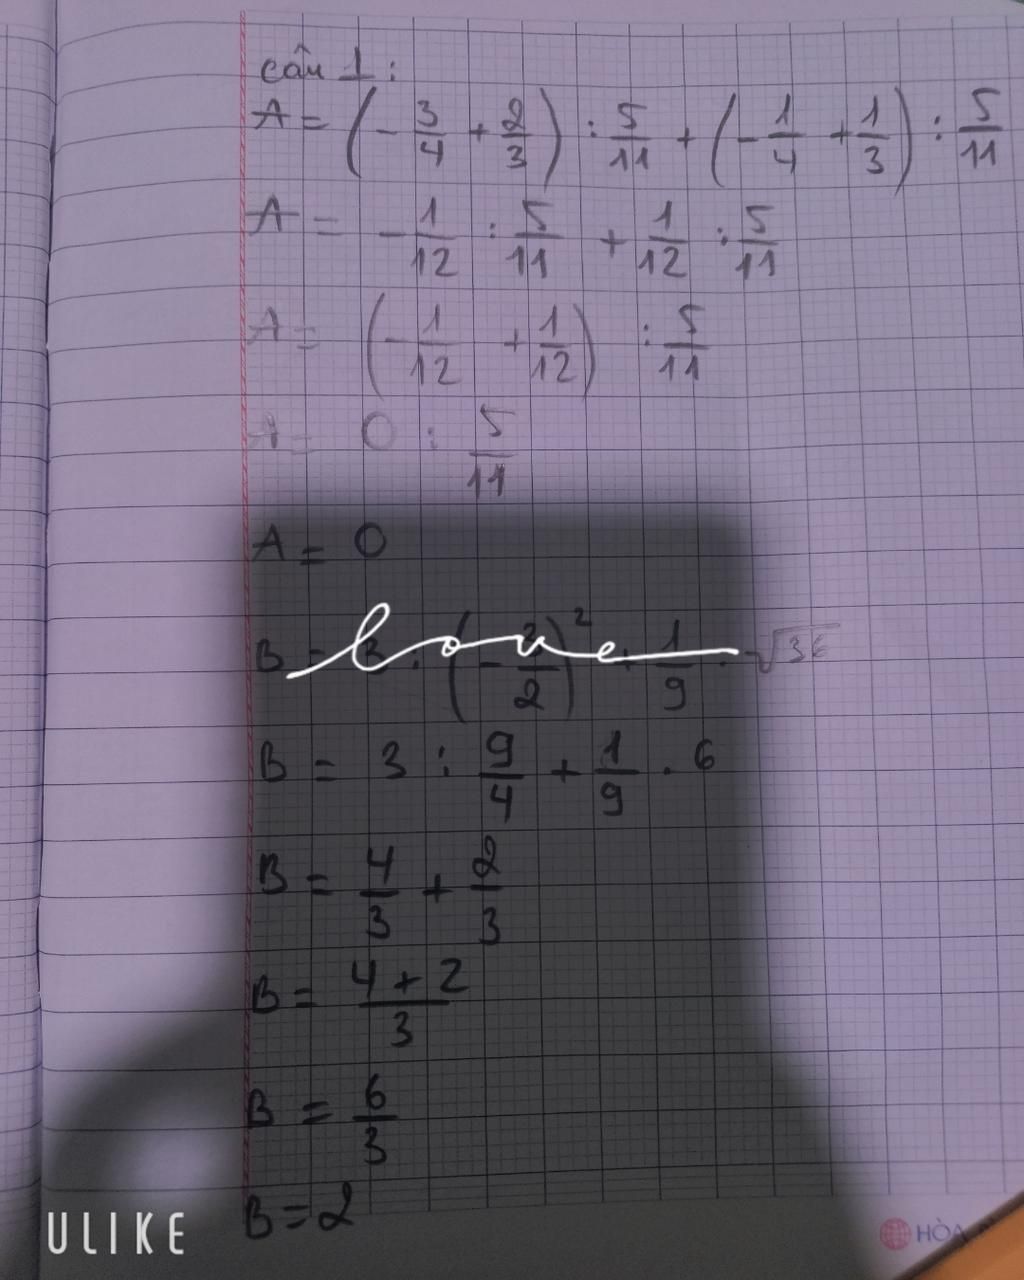 câu 1:
A = (-3/4 + 2/3) : 5/11 + (-1/4 + 1/3) : 5/11
A = -1/12 : 5/11 + 1/12 : 5/11
A = (-1/12 + 1/12) : 5/11
A = 0 : 5/11
A = 0
love
B = 3 : (-3/2)² + 1/9 . √36
B = 3 : 9/4 + 1/9 . 6
B = 4/3 + 2/3
B = (4+2)/3
B = 6/3
B = 2
ULIKE
HÒA